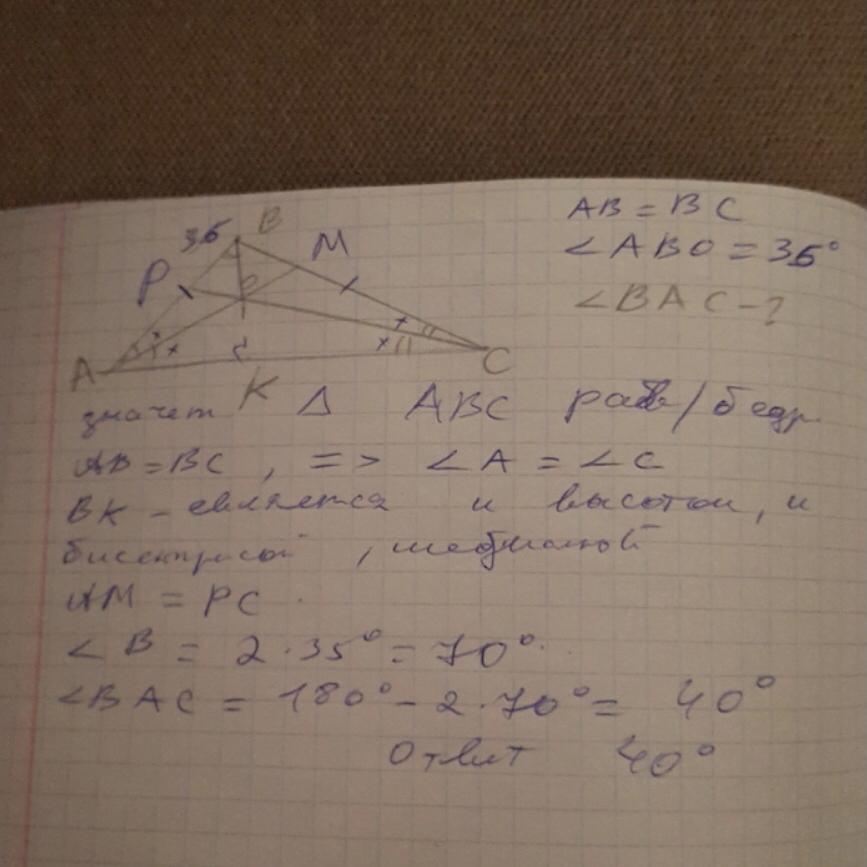 AB = BC
∠ABO = 35°
∠BAC - ?
35 B M
P
O
A C
K
значет Δ ABC рав/бедр.
AB = BC, => ∠A = ∠C
BK - евляется и высотой, и
бисектрисой, медианой
AM = PC.
∠B = 2·35° = 70°.
∠BAC = 180° - 2·70° = 40°
Ответ 40°